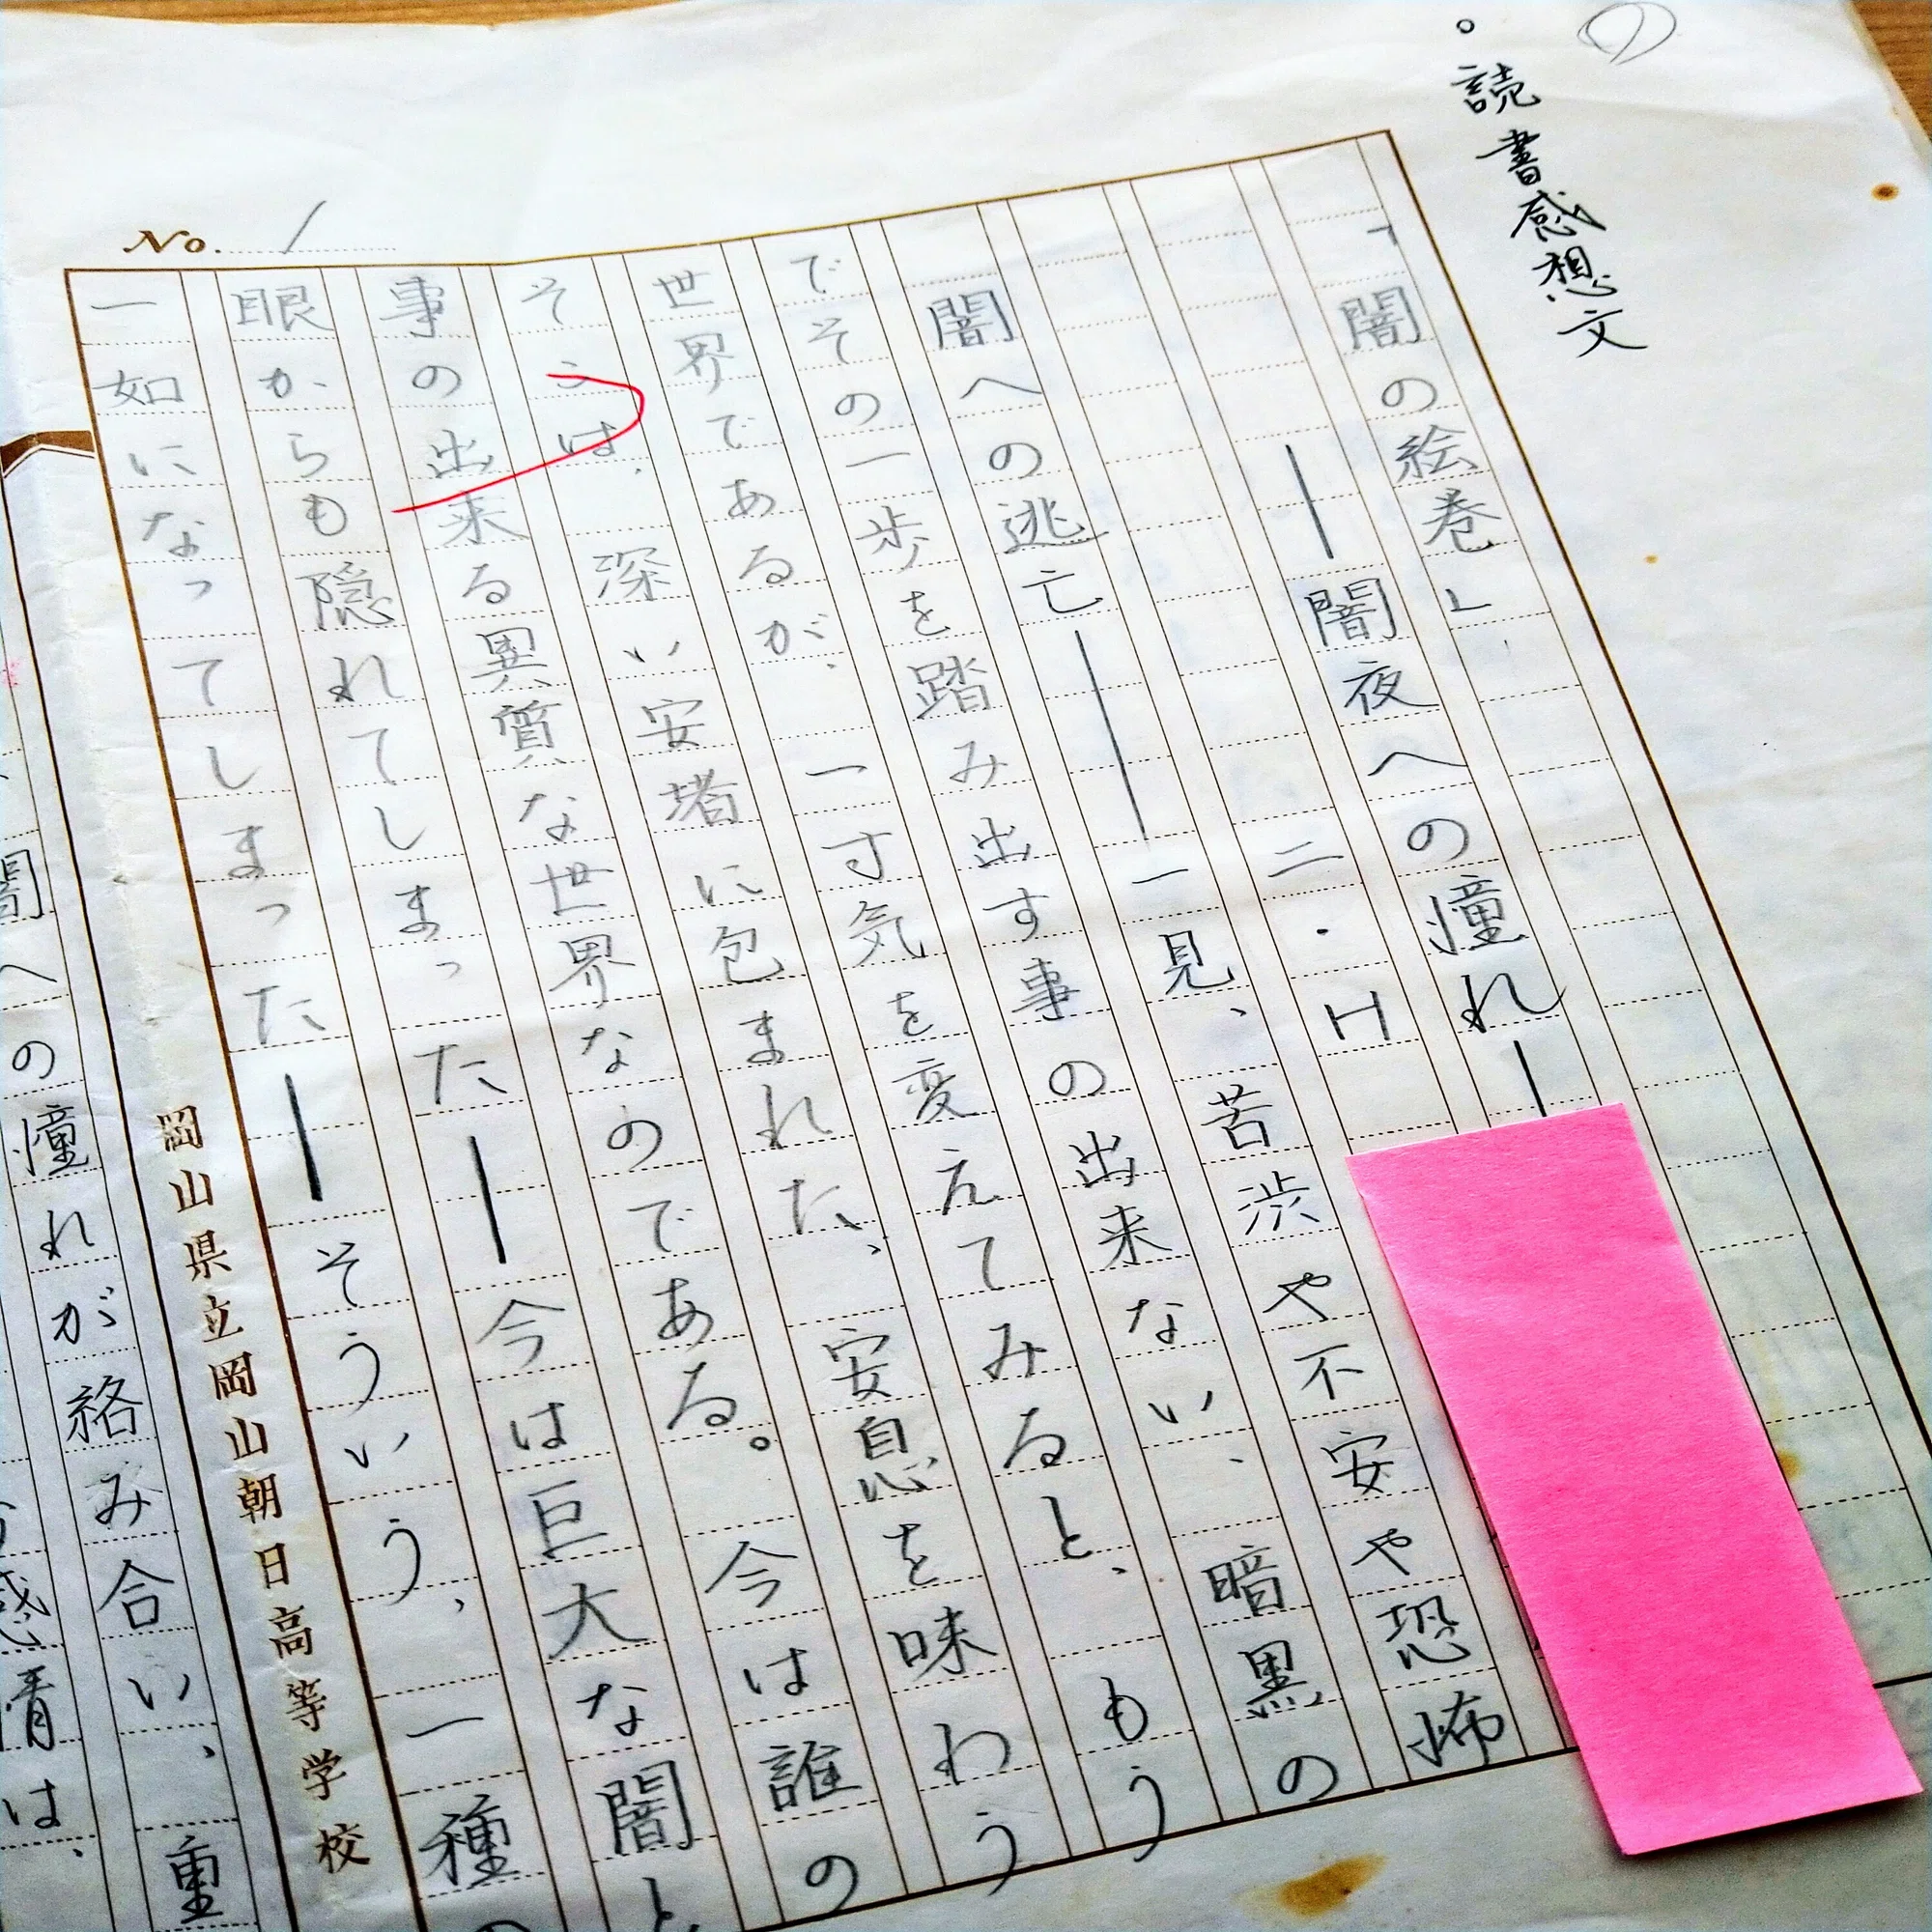 の
。読書感想文
「闇の絵巻」、
―闇夜への憧れ―
二・H
闇への逃亡――一見、苦渋や不安や恐怖
でその一歩を踏み出す事の出来ない、暗黒の
世界であるが、一寸気を変えてみると、もう
そこは、深い安堵に包まれた、安息を味わう
事の出来る異質な世界なのである。今は誰の
眼からも隠れてしまった―今は巨大な闇と
一如になってしまった―そういう、一種の
No. 1
岡山県立岡山朝日高等学校
闇への憧れが絡み合い、重
感情は、